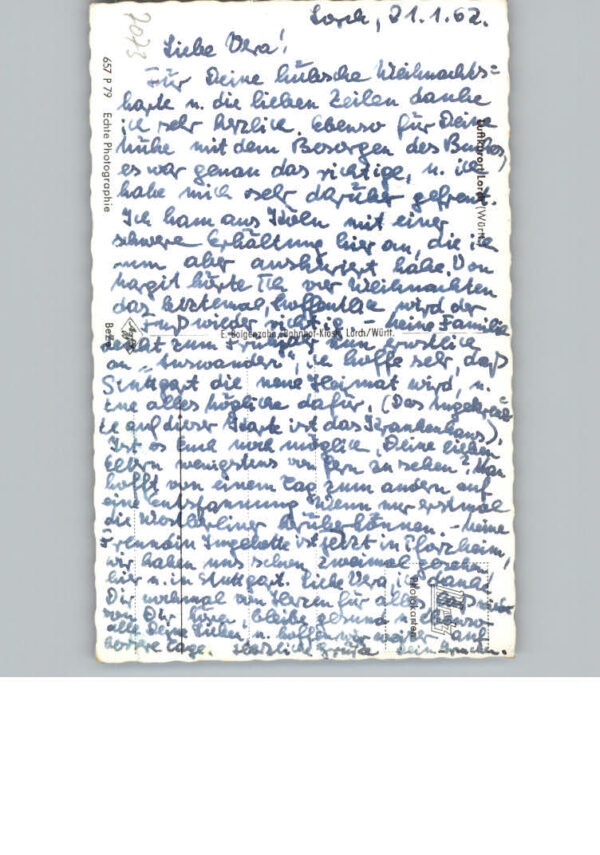 Lorch, 21.1.62.
2073
Liebe Vera!
Für Deine hübsche Weihnachts=
karte u. die lieben Zeilen danke
ich sehr herzlich, ebenso für Deine
Mühe mit dem Besorgen des Buches,
es war genau das richtige, u. ich
habe mich sehr darüber gefreut.
Ich kam aus Köln mit einer
schweren Erkältung hier an, die ich
nun aber auskuriert habe. Von
Margit hörte ich vor Weihnachten
das letztemal, hoffentlich wird der
Fuß wieder richtig. – Meine Familie
denkt zum Frühjahr nun ernstlich
an "Auswandern", ich hoffe sehr, daß
Stuttgart die neue Heimat wird, u.
tue alles mögliche dafür. (Das
auf dieser Karte ist das Krankenhaus).
Ist es Euch noch möglich, Deine lieben
Eltern wenigstens von fern zu sehen? Man
hofft von einem Tag zum andern auf
eine Entspannung. Wenn nur erstmal
die Westberliner herüber können. – Meine
Freundin ist jetzt in Pforzheim,
wir haben uns schon zweimal gesehen,
hier u. in Stuttgart. Liebe Vera, ich danke
Dir nochmal von Herzen für alles,
von Dir hören, bleibe gesund u. ebenso
alle Deine Lieben u. hoffen wir weiter auf
bessere Tage. Herzliche Grüße
657 P 79 Echte Photographie
Luftkurort Lorch (Württ.)
E. Bahnhof-Kiosk, Lorch/Württ.